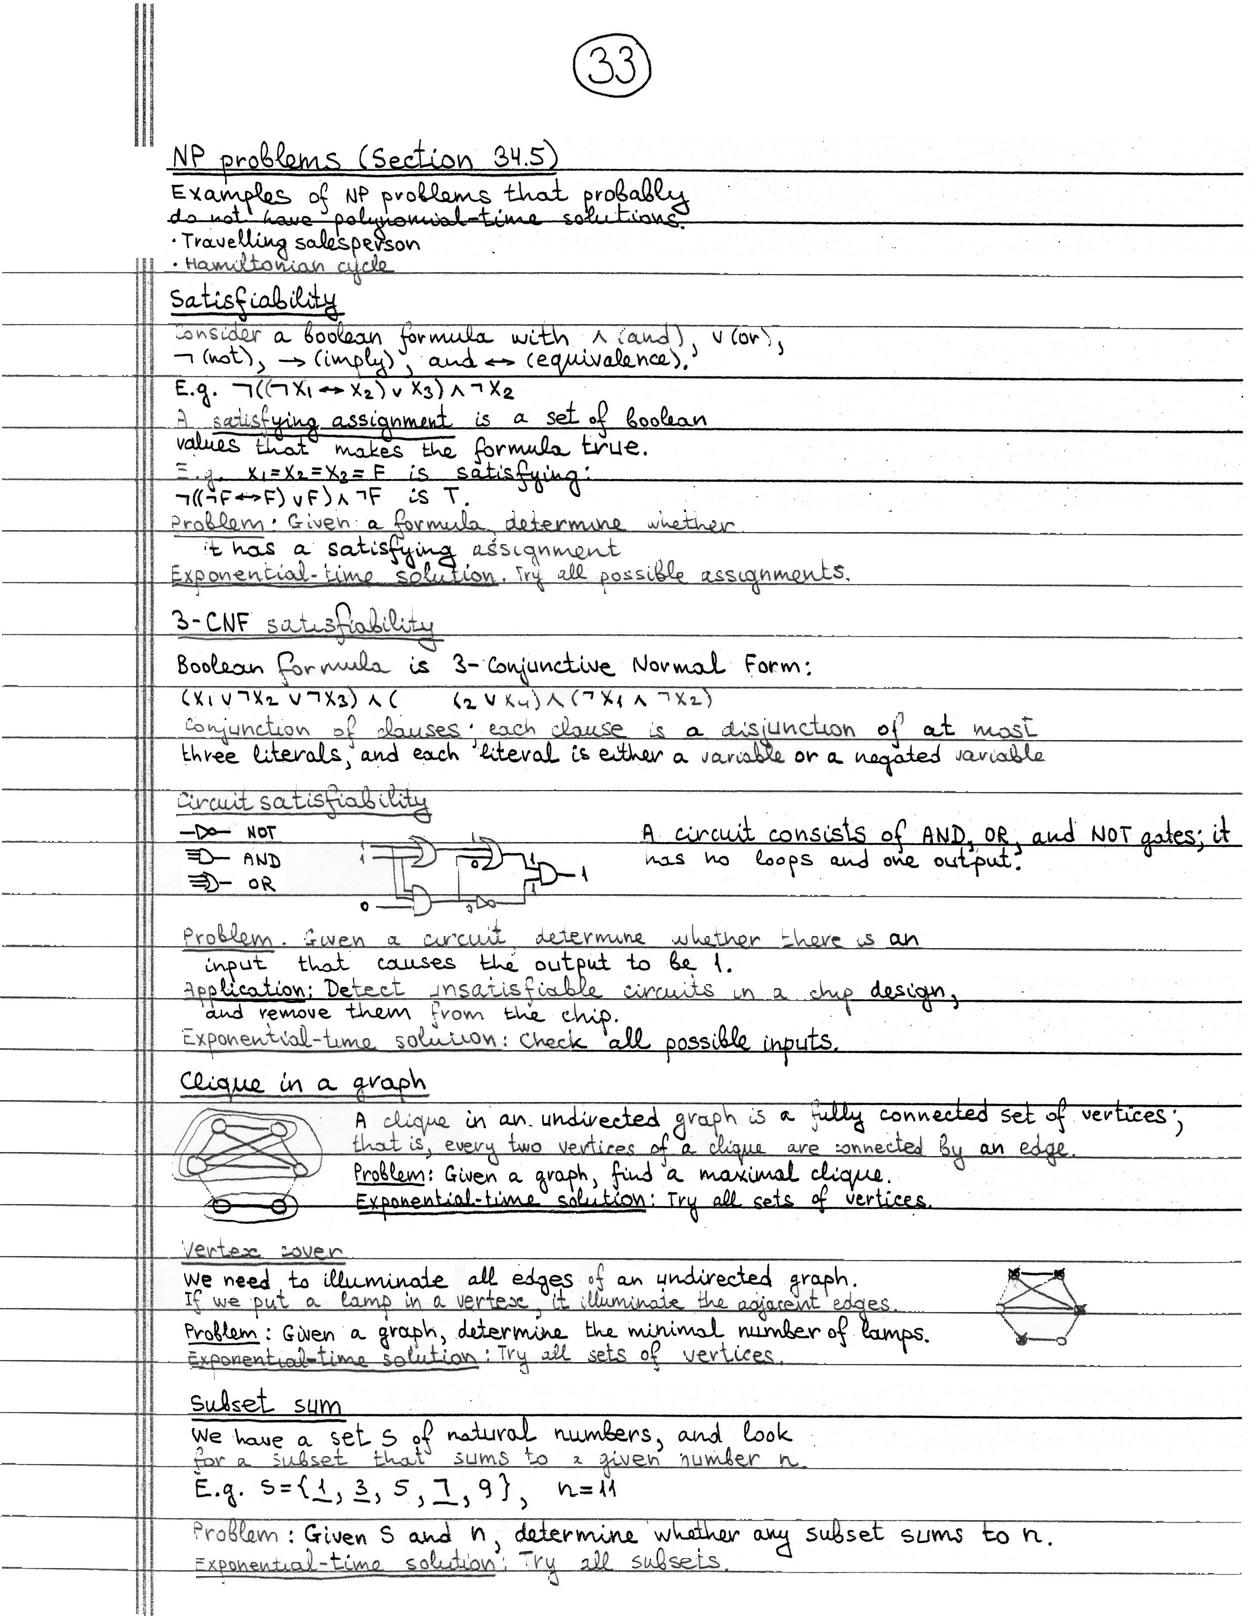 33
NP problems (Section 34.5)
Examples of NP problems that probably
do not have polynomial-time solutions.
· Travelling salesperson
· Hamiltonian cycle
Satisfiability
Consider a boolean formula with ∧ (and), ∨ (or),
¬ (not), → (imply), and ↔ (equivalence).
E.g. ¬((¬X1 ↔ X2) ∨ X3) ∧ ¬X2
A satisfying assignment is a set of boolean
values that makes the formula true.
E.g. X1 = X2 = X3 = F is satisfying:
¬((¬F ↔ F) ∨ F) ∧ ¬F is T.
Problem: Given a formula, determine whether
it has a satisfying assignment
Exponential-time solution. Try all possible assignments.
3-CNF satisfiability
Boolean formula is 3-Conjunctive Normal Form:
(X1 ∨ ¬X2 ∨ ¬X3) ∧ ( (2 ∨ X4) ∧ (¬X1 ∧ ¬X2)
Conjunction of clauses: each clause is a disjunction of at most
three literals, and each literal is either a variable or a negated variable
Circuit satisfiability
NOT
AND
OR
1
1
0
1
0
1
1
1
A circuit consists of AND, OR, and NOT gates; it
has no loops and one output.
Problem. Given a circuit, determine whether there is an
input that causes the output to be 1.
Application: Detect unsatisfiable circuits in a chip design,
and remove them from the chip.
Exponential-time solution: Check all possible inputs.
Clique in a graph
A clique in an undirected graph is a fully connected set of vertices;
that is, every two vertices of a clique are connected by an edge.
Problem: Given a graph, find a maximal clique.
Exponential-time solution: Try all sets of vertices.
Vertex cover
We need to illuminate all edges of an undirected graph.
If we put a lamp in a vertex, it illuminate the adjacent edges.
Problem: Given a graph, determine the minimal number of lamps.
Exponential-time solution: Try all sets of vertices.
Subset sum
We have a set S of natural numbers, and look
for a subset that sums to a given number n.
E.g. S={1, 3, 5, 7, 9}, n=11
Problem: Given S and n, determine whether any subset sums to n.
Exponential-time solution: Try all subsets.